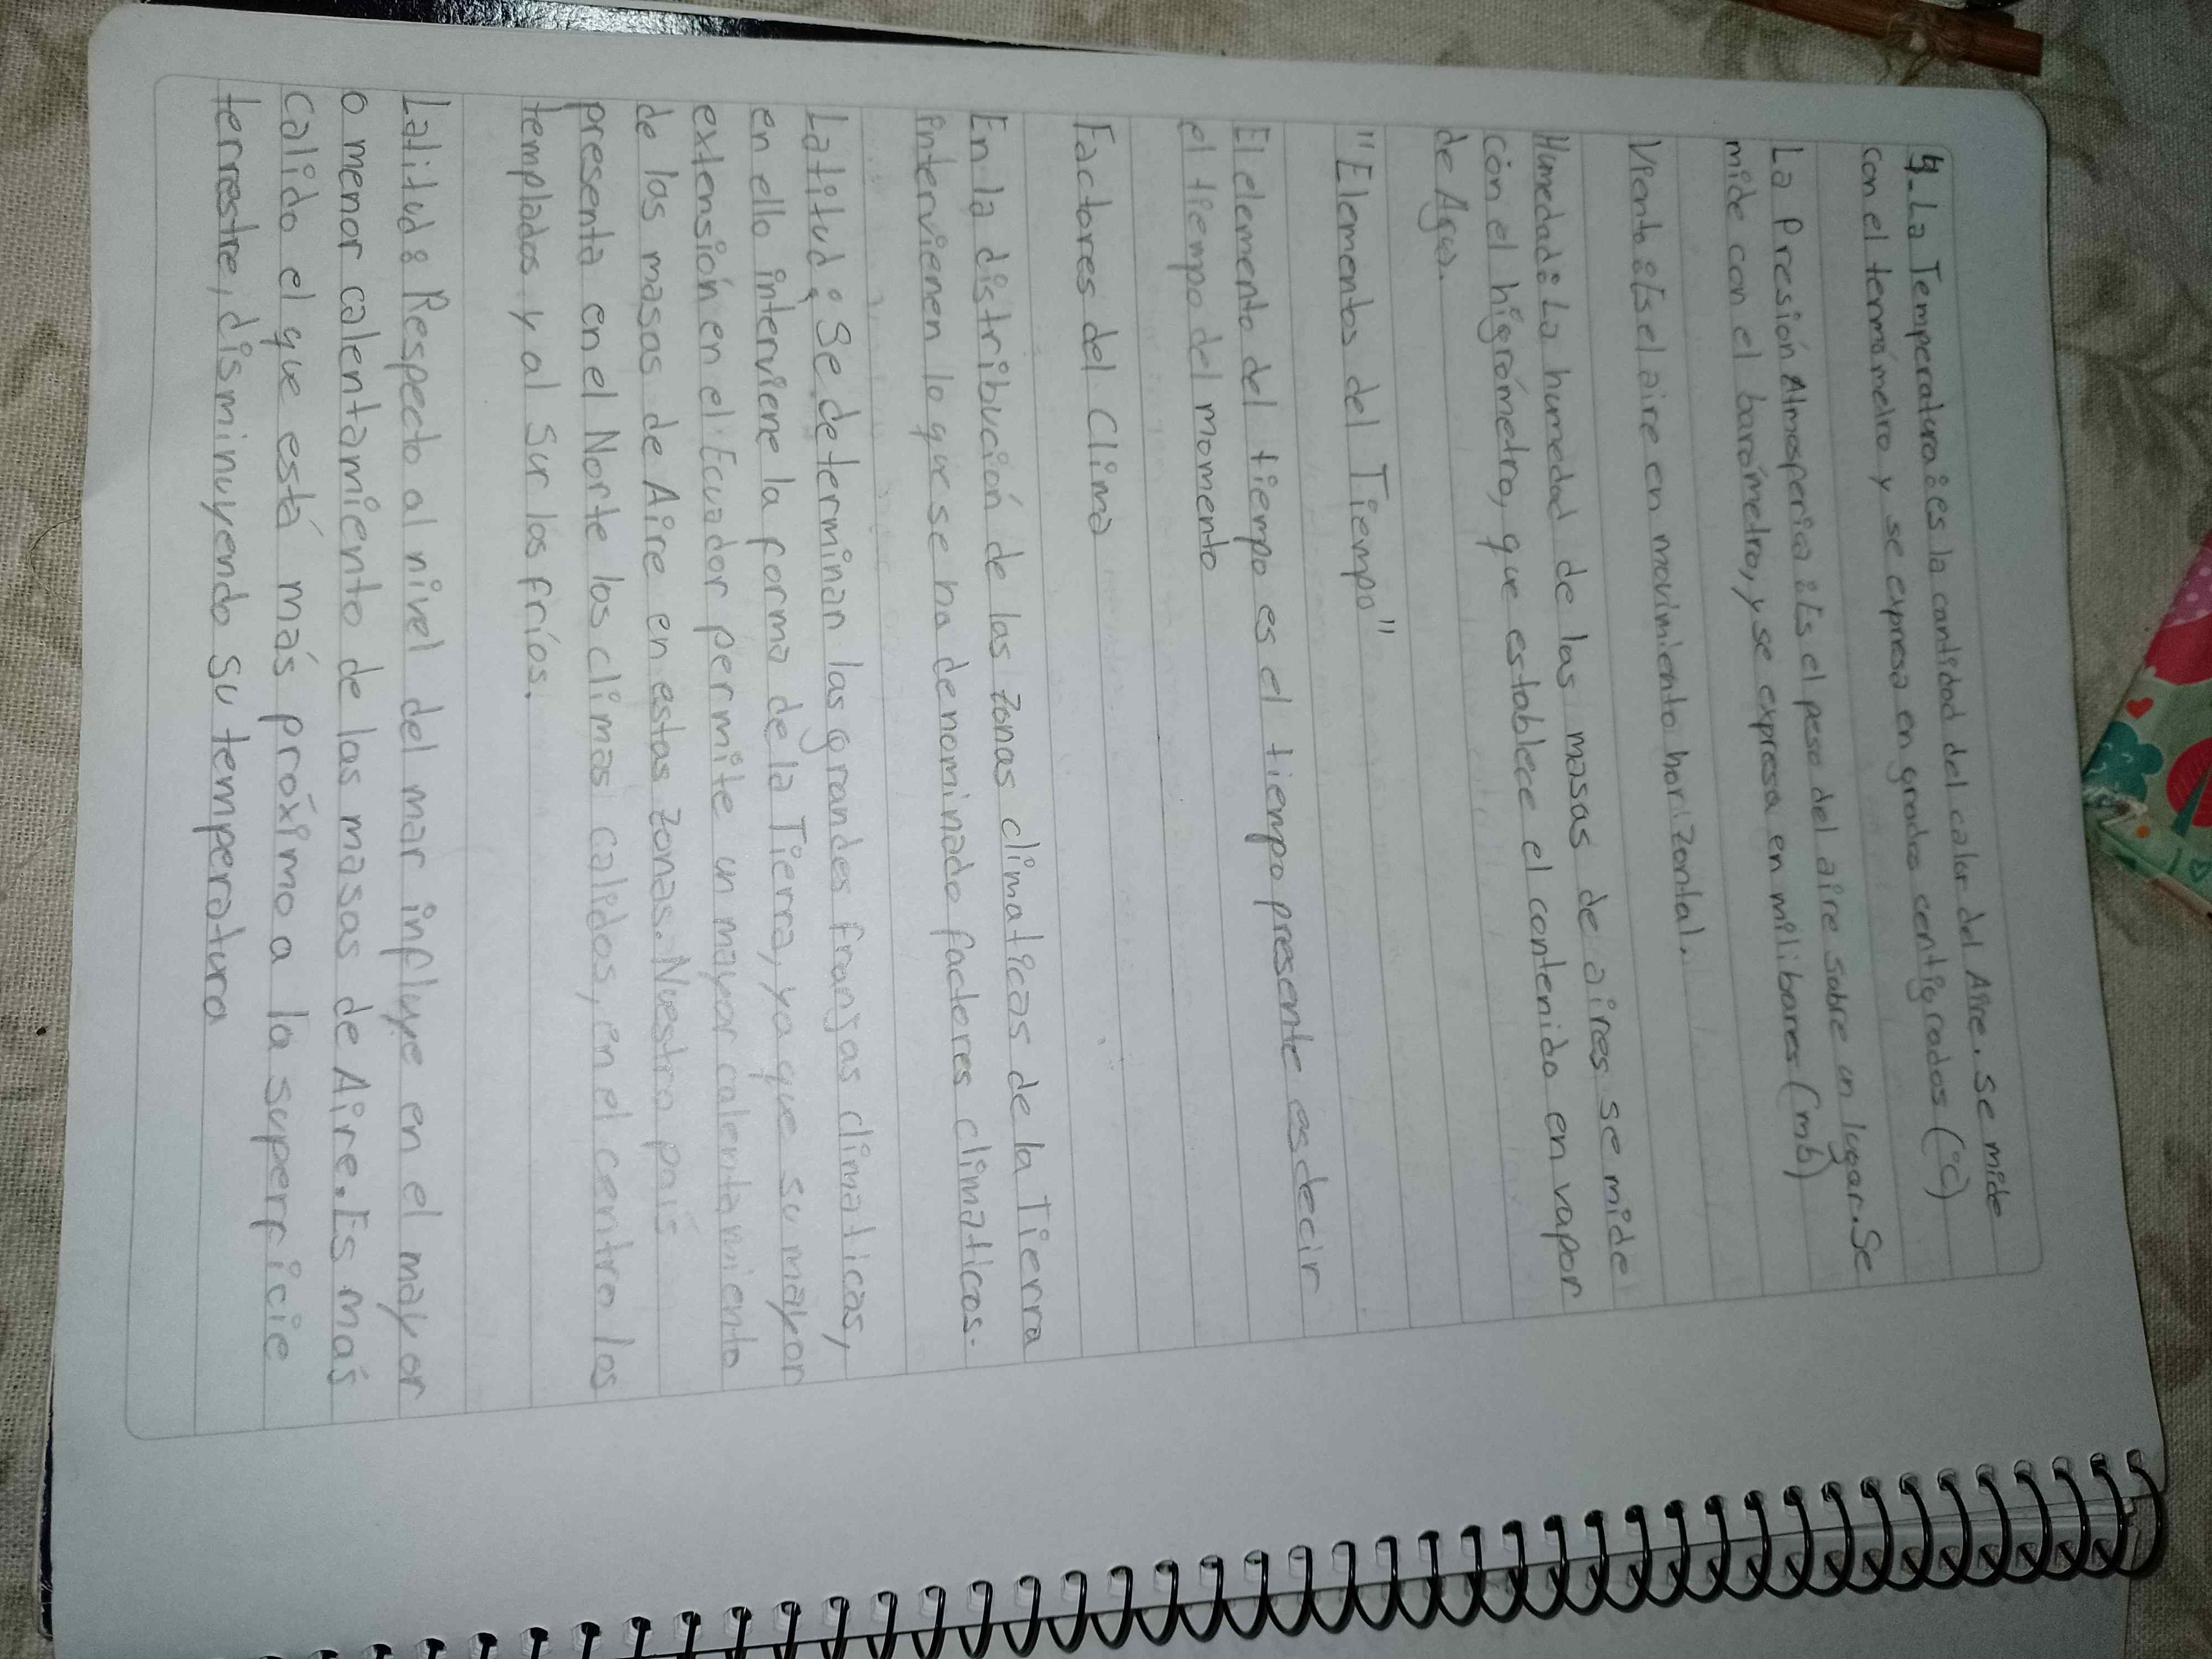 4-La Temperatura: es la cantidad del calor del Aire. Se mide
con el termómetro y se expresa en grados centigrados (°C)
La Presión Atmosferica: Es el peso del aire sobre un lugar. Se
mide con el barómetro, y se expresa en milibares (mb)
Viento: Es el aire en movimiento horizontal.
Humedad: La humedad de las masas de aires se mide
con el higrómetro, que establece el contenido en vapor
de Agua.
"Elementos del Tiempo"
El elemento del tiempo es el tiempo presente es decir
el tiempo del momento
Factores del Clima
En la distribución de las zonas climaticas de la Tierra
intervienen lo que se ha denominado factores climaticos.
Latitud: Se determinan las grandes franjas climaticas,
en ello interviene la forma de la Tierra, ya que su mayor
extensión en el Ecuador permite un mayor calentamiento
de las masas de Aire en estas zonas. Nuestro pais
presenta en el Norte los climas calidos, en el centro los
templados y al Sur los fríos.
Latitud: Respecto al nivel del mar influye en el mayor
o menor calentamiento de las masas de Aire. Es más
calido el que está más próximo a la superficie
terrestre, disminuyendo su temperatura